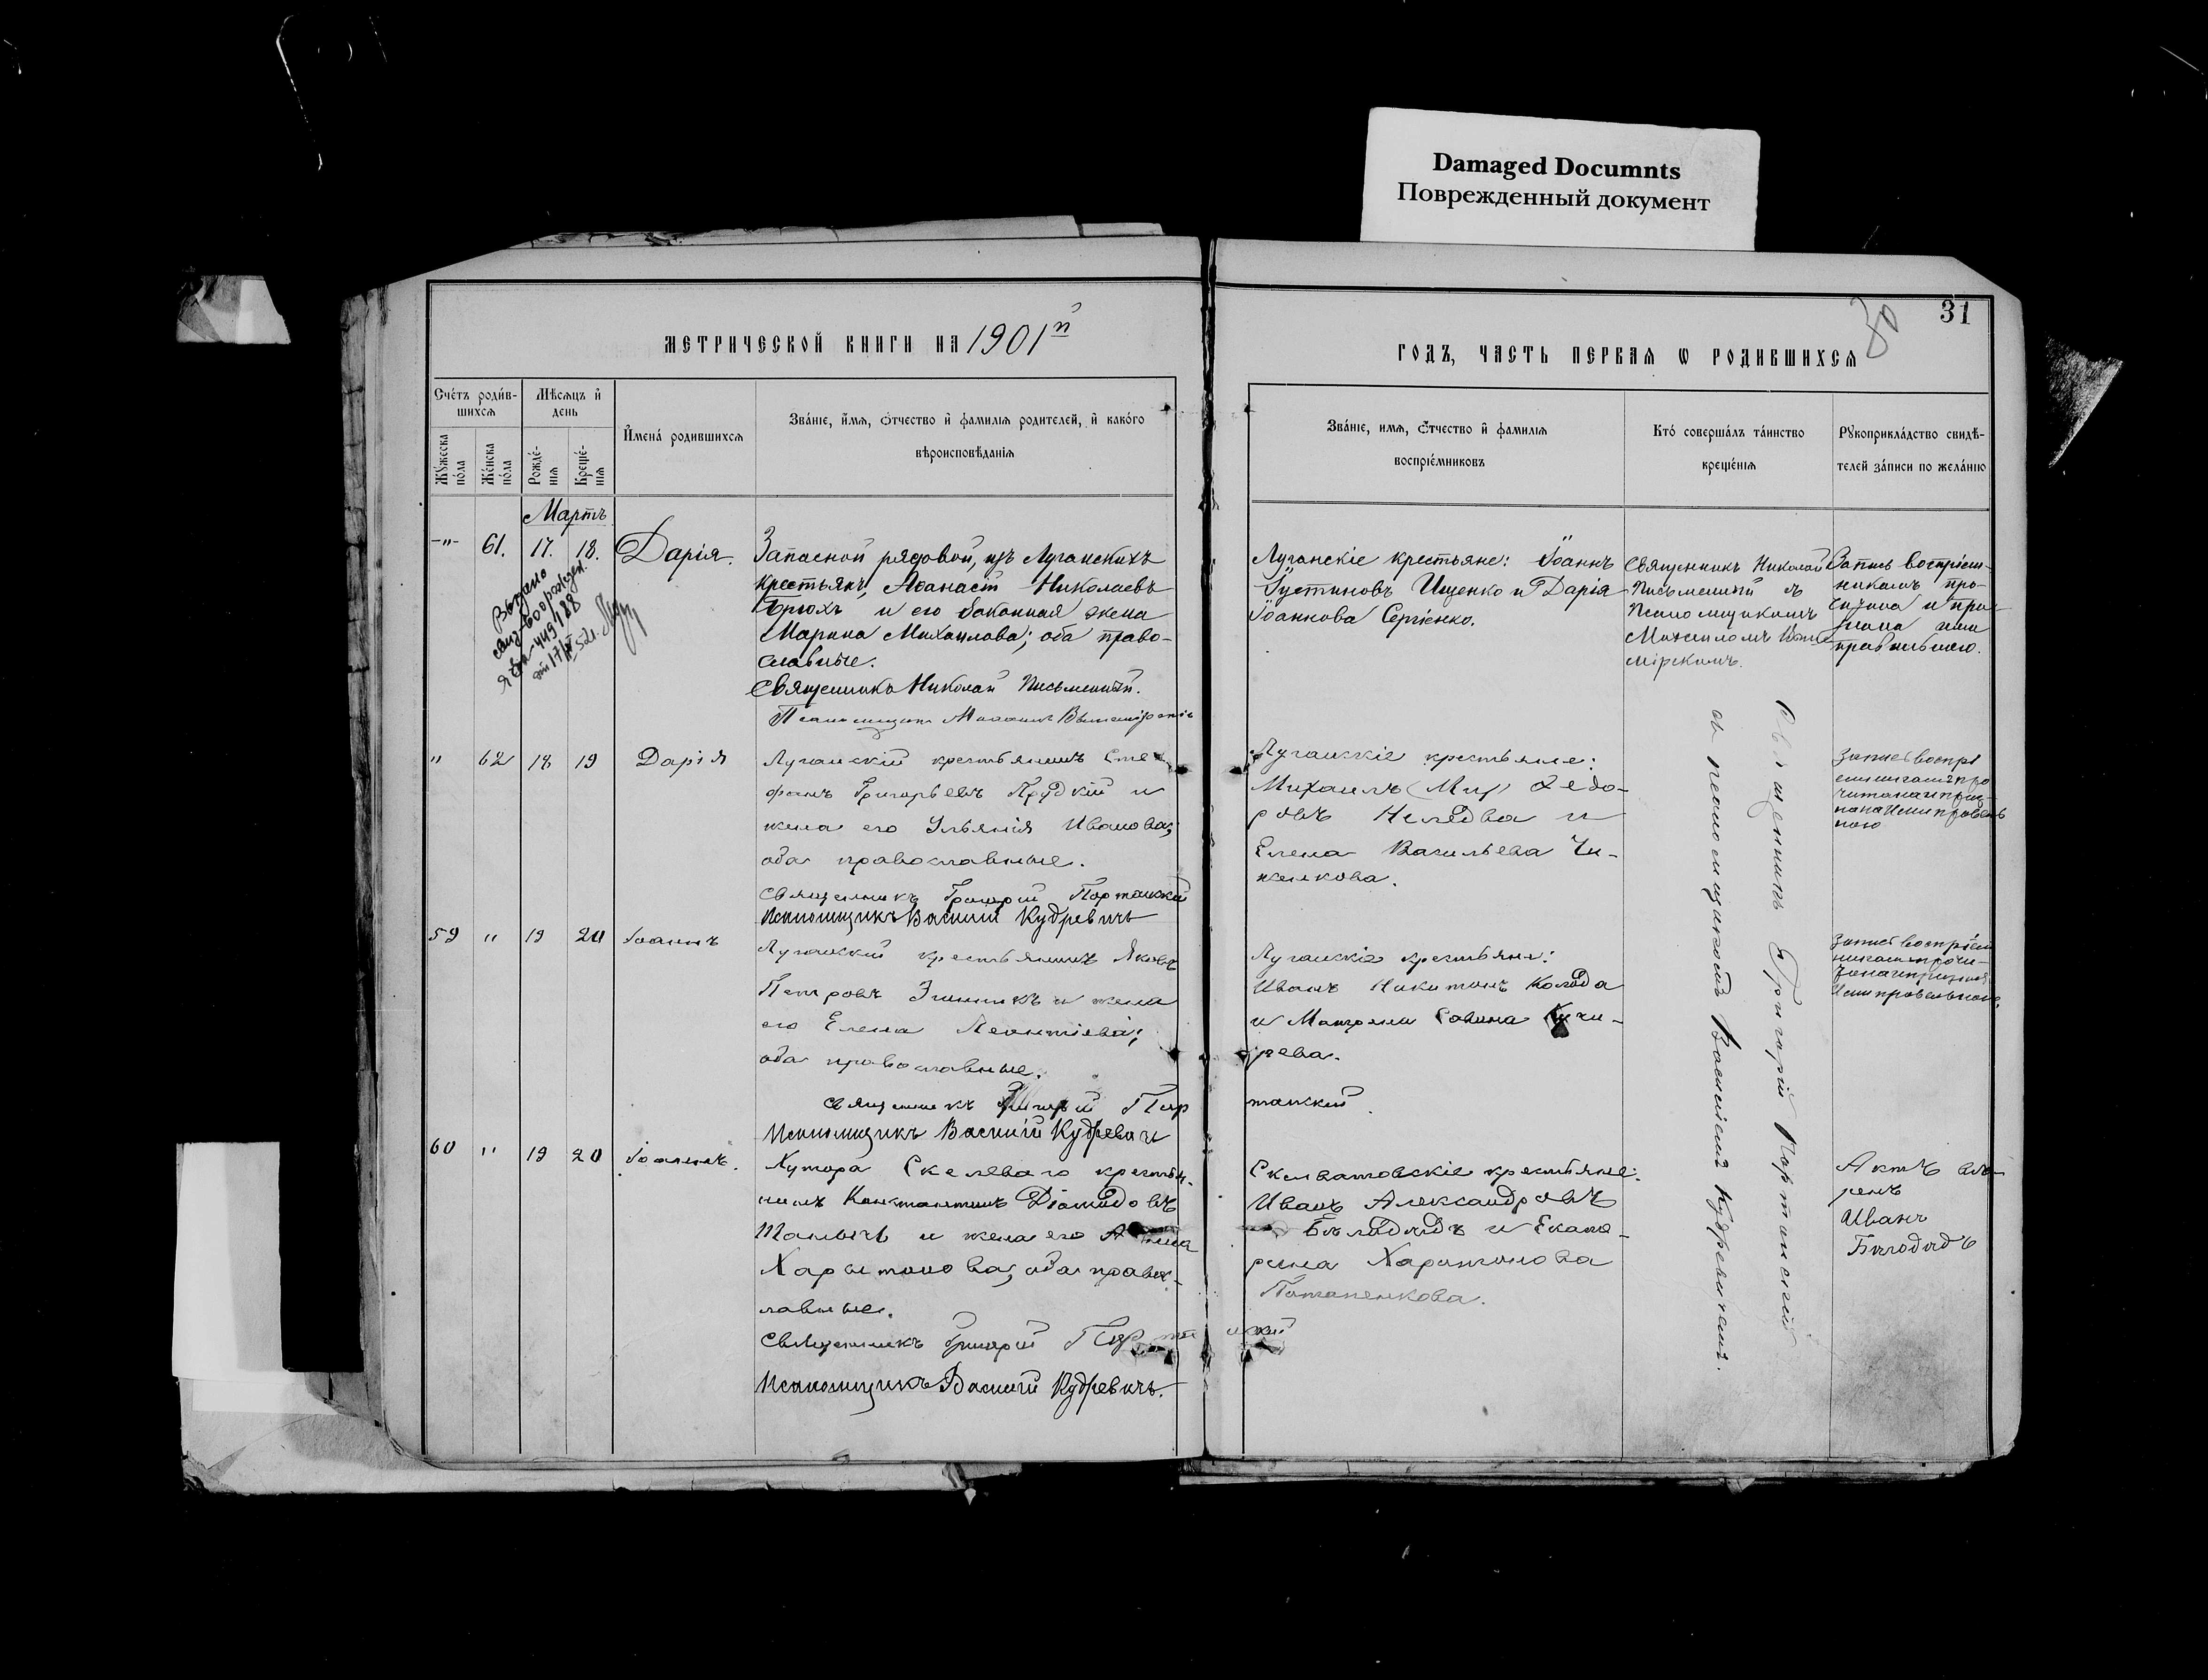 Damaged Documnts
Поврежденный документ
31
30
МЕТРИЧЕСКОЙ КНИГИ НА 1901й
ГОДЪ, ЧАСТЬ ПЕРВАЯ Ѡ РОДИВШИХСЯ
Счетъ родив-
шихся
Мужеска
пола
Женска
пола
Мѣсяцъ и
день
Рожде-
нія
Креще-
нія
Имена родившихся
Званіе, имя, отчество и фамилія родителей, и какого
вѣроисповѣданія
Званіе, имя, отчество и фамилія
воспріемниковъ
Кто совершалъ таинство
крещенія
Рукоприкладство свидѣ-
телей записи по желанію
Мартъ
-"- 61. 17. 18. Дарія.
Выдано
Запасной рядовой, изъ Луганскихъ
крестьянъ, Аѳанасій Николаевъ
Брюхъ и его законная жена
Марина Михаилова; оба право-
славные.
Священникъ Николай Письменный.
Псаломщикъ Михаилъ
Луганскіе крестьяне: Іоаннъ
Іустиновъ Ищенко и Дарія
Іоаннова Сергіенко.
Священникъ Николай
Письменный съ
Псаломщикомъ
Михаиломъ
мірскимъ.
Запись воспріем-
никамъ про-
читана и при-
знана ими
правильною.
" 62 18 19 Дарія
Луганскій крестьянинъ Сте-
фанъ Григорьевъ Прудкій и
жена его Ульянія Иванова;
оба православные.
Священникъ Григорій Портанскій
Псаломщикъ Василій Кудревичъ
Луганскіе крестьяне:
Михаилъ Федо-
ровъ и
Елена Васильева Чи-
жикова.
Запись воспрі
емникамъ про
читана и приз-
нана ими правиль
ною
59 " 19 20 Іоаннъ
Луганскій крестьянинъ Яковъ
Петровъ Зинникъ и жена
его Елена Леонтіева;
оба православные.
Священникъ Григорій Портанскій.
Псаломщикъ Василій Кудревичъ
Луганскіе крестьяне:
Иванъ Никитинъ Колода
и Матрона Савина
рева.
Запись воспріем
никамъ прочи-
тана и признана
ими правильною.
60 " 19 20 Іоаннъ.
Хутора Скелеваго крестья-
нинъ Константинъ Діомидовъ
и жена его Анна
Харитонова, оба правос-
лавные.
Священникъ Григорій Портанскій
Псаломщикъ Василій Кудревичъ.
Скелеватовскіе крестьяне:
Иванъ Александровъ
Бѣлодѣдъ и Екате-
рина Харитонова
Потапенкова.
Актъ вѣ-
ренъ
Иванъ
Бѣлодѣдъ
Священникъ Григорій Портанскій
съ псаломщикомъ Василіемъ Кудревичемъ.